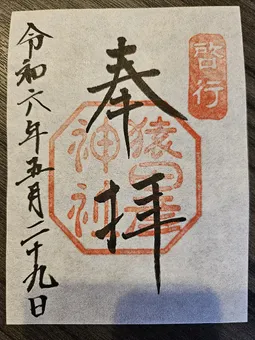 啓行
奉拝
猿田彦
神社
令和六年五月二十九日